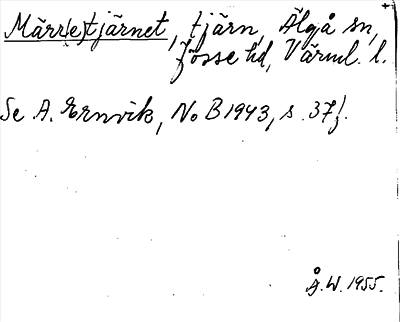 Märr(e)tjärnet, tjärn, Älgå sn,
Jösse hd, Värml. l.
Se A. Ernvik, NoB 1943, s. 37f.
Å.W. 1955.